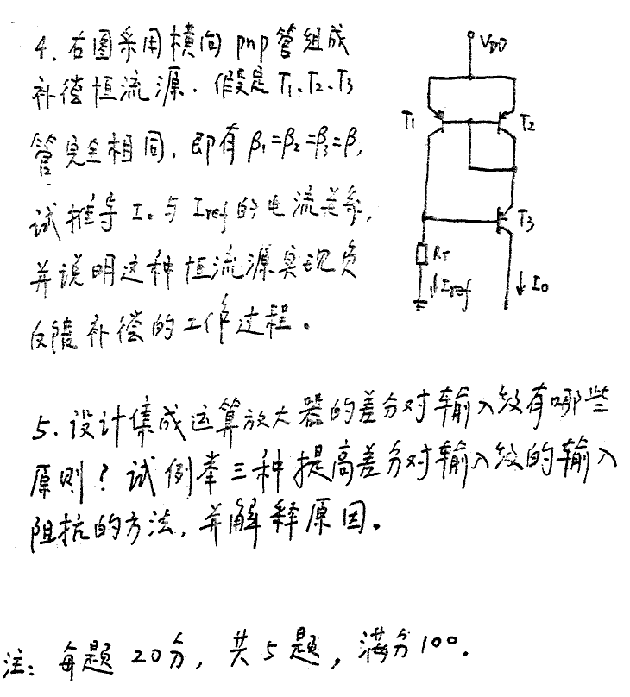 4. 右图采用横向pnp管组成
补偿恒流源. 假定T1、T2、T3
管完全相同, 即有β1=β2=β3=β,
试推导Io与Iref的电流关系,
并说明这种恒流源实现负
反馈补偿的工作过程。
VDD
T1
T2
T3
Rr
Iref
Io
5. 设计集成运算放大器的差分对输入级有哪些
原则? 试例举三种提高差分对输入级的输入
阻抗的方法, 并解释原因。
注: 每题20分, 共5题, 满分100.